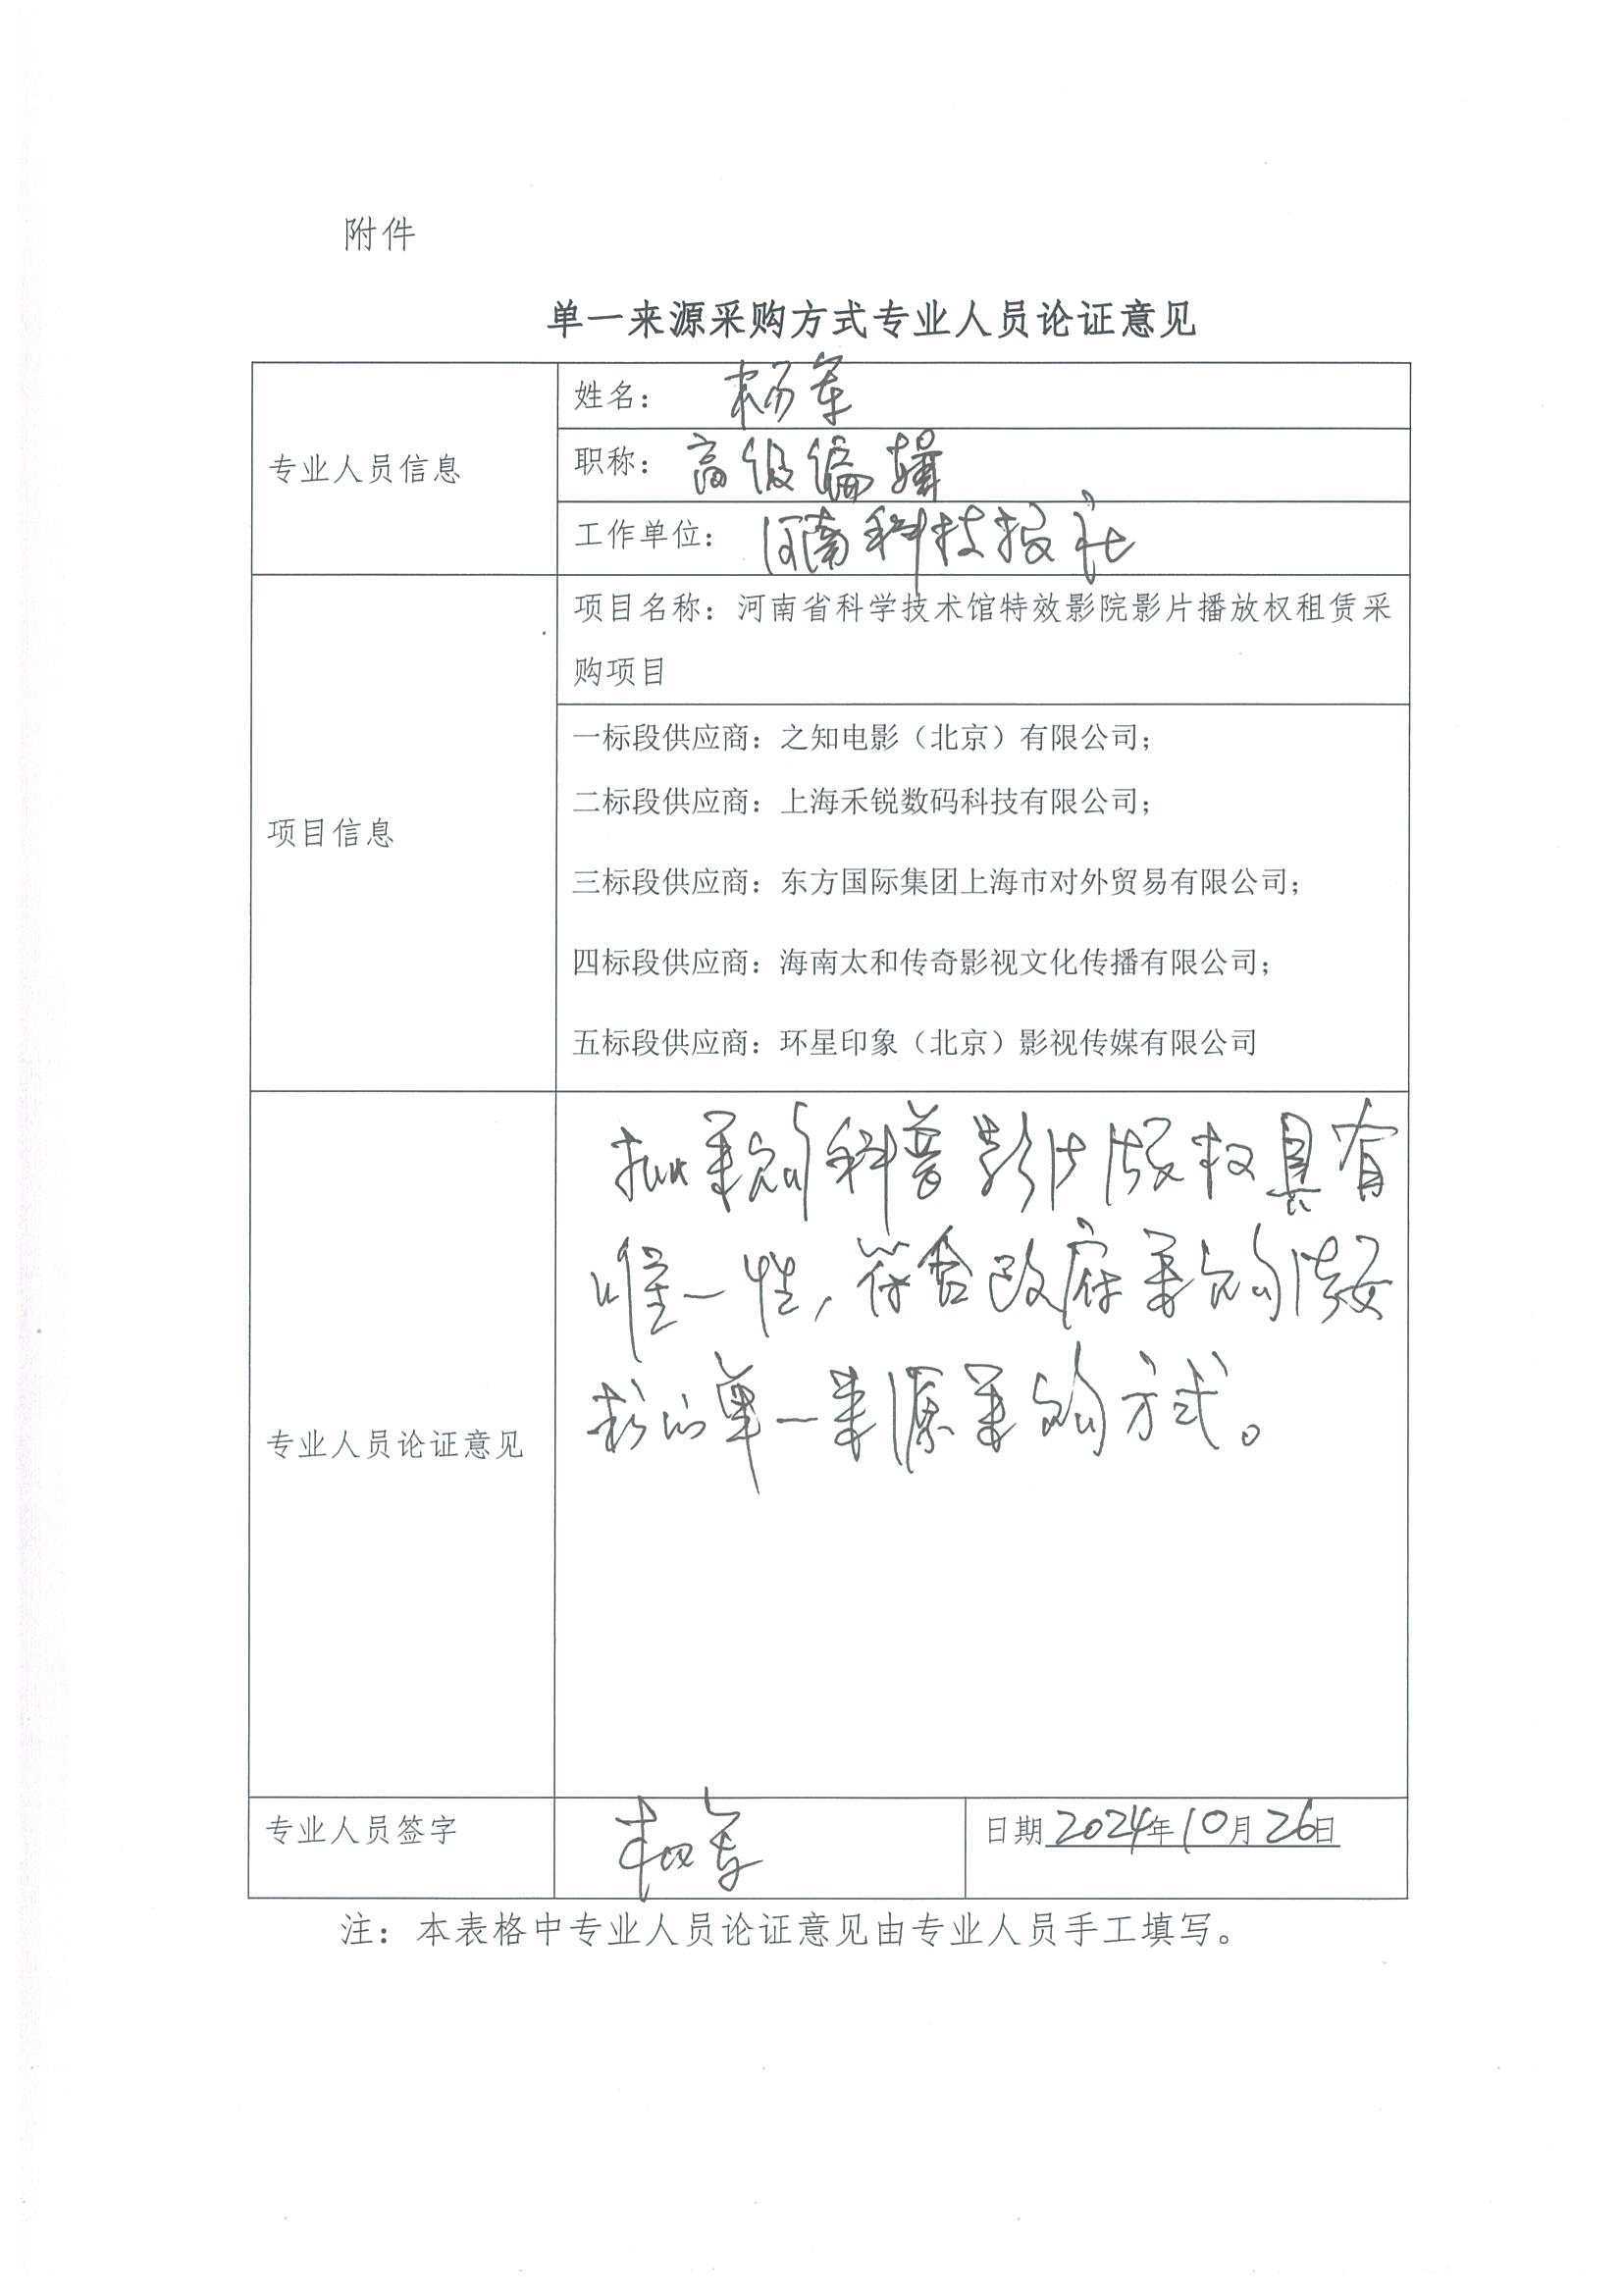 附件
单一来源采购方式专业人员论证意见
专业人员信息
姓名： 杨军
职称： 高级编辑
工作单位： 河南科技报社
项目信息
项目名称：河南省科学技术馆特效影院影片播放权租赁采
购项目
一标段供应商：之知电影（北京）有限公司；
二标段供应商：上海禾锐数码科技有限公司；
三标段供应商：东方国际集团上海市对外贸易有限公司；
四标段供应商：海南太和传奇影视文化传播有限公司；
五标段供应商：环星印象（北京）影视传媒有限公司
专业人员论证意见
拟采购科普影片版权具有
唯一性，符合政府采购法要
求的单一来源采购方式。
专业人员签字
杨军
日期2024年10月26日
注：本表格中专业人员论证意见由专业人员手工填写。